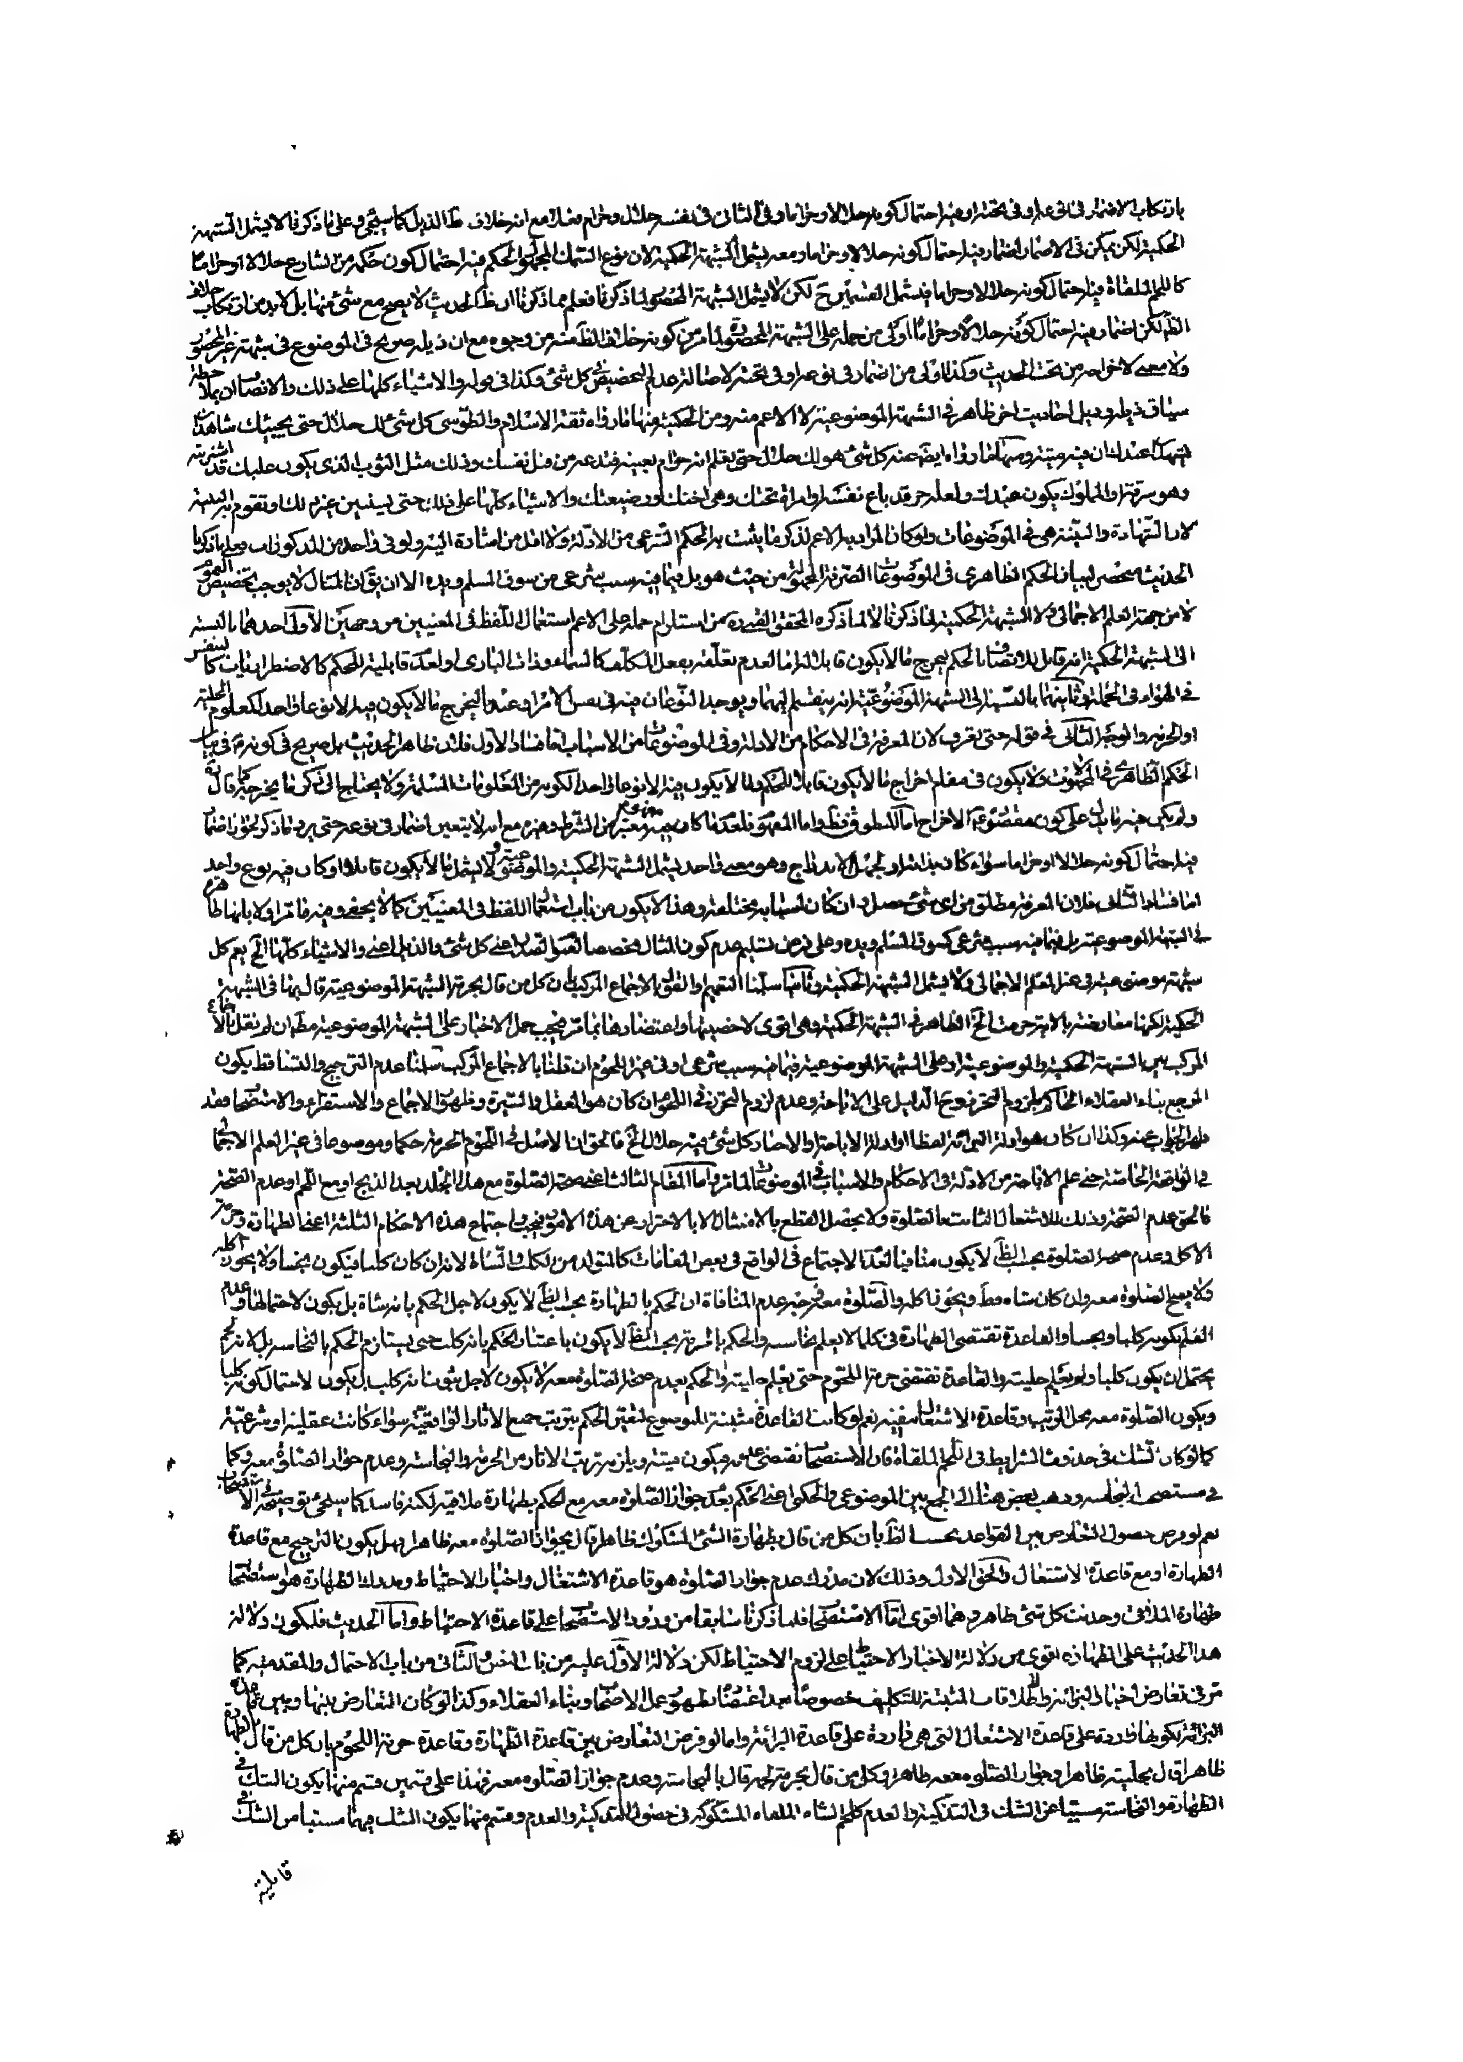 بارتكاب الاضمار في نوعه او في تحته او فيه احتمال كونه حلالا وحراما وفي الثاني في نفسه حلال وحرام فعلا مع انه خلاف ظ الذيل كما سيجئ وعلى ما ذكرنا لا يشمل الشبهة
الحكمية لكن يمكن في الاضمار اضمار فيه احتمال كونه حلالا وحراما ومعه يشمل الشبهة الحكمية لان نوع الشك المجهول الحكم فيه احتمال كون حكمه من الشارع حلالا او حراما
كاللحم الملقاة فيه احتمال كونه حلالا وحراما فيشمل القسمين ح لكن لا يشمل الشبهة المحصورة لما ذكرنا فعلم مما ذكرنا ان ظ الحديث لا يصح مع شئ منها بل لا بد من ارتكاب خلاف
الظ لكن اضمار فيه احتمال كونه حلالا وحراما اولى من حمله على الشبهة المحصورة لما مر من كونه خلاف الظ منه من وجوه مع ان ذيله صريح في الموضوع في شبهة غير المحصور
ولا معنى لاخراجه من تحت الحديث وكذا اولى من اضمار في نوعه او في تحته لاصالة عدم التخصيص في كل شئ وكذا في قوله والاشياء كلها على ذلك والانصاف ان بملاحظة
سياق ذيله وذيل احاديث اخر ظاهر في الشبهة الموضوعية لا الاعم منه ومن الحكمية منها ما رواه ثقة الاسلام والطوسي كل شئ لك حلال حتى يجيئك شاهدان
يشهدان عندك ان فيه ميتة ومنها ما رواه ايضا عنه كل شئ هو لك حلال حتى تعلم انه حرام بعينه فتدعه من قبل نفسك وذلك مثل الثوب الذي يكون عليك قد اشتريته
وهو سرقة او المملوك يكون عندك ولعله حر قد باع نفسه او امراة تحتك وهي اختك او رضيعتك والاشياء كلها على ذلك حتى يستبين غير ذلك وتقوم به البينة
لان الشهادة والبينة هي في الموضوعات ولو كان المراد به الاعم لذكر ما يثبت به الحكم الشرعي من الادلة ولا اقل من اشارة اليه ولو في واحد من المذكورات وعلى ما ذكرنا
الحديث منحصر لبيان الحكم الظاهري في الموضوعات الصرفة المجهولة من حيث هو بل فيما فيه سبب شرعي من سوق المسلم ويده الا ان يق ان المثال لا يوجب تخصيص العموم
لا من جهة العلم الاجمالي ولا الشبهة الحكمية لما ذكرنا لا لما ذكره المحقق القمي ره من استلزام حمله على الاعم استعمال اللفظ في المعنيين من وجهين الاول احدهما بالنسبة
الى الشبهة الحكمية انه قابل للاتصاف بالحكم يخرج ما لا يكون قابلا اما لعدم تعلقه بفعل المكلف كالسماء وذات الباري او لعدم قابليته للحكم كالاضطراريات كالتنفس
في الهواء في الجملة وثانيهما بالنسبة الى الشبهة الموضوعية انه ينقسم اليهما ويوجد النوعان فيه في نفس الامر او عندنا ليخرج ما لا يكون فيه الا نوعا واحدا كمعلوم الحلية
او الحرمة والوجه الثاني في قوله حتى تعرف لان المعرفة في الاحكام من الادلة وفي الموضوعات من الاسباب اما فساد الاول فلان ظاهر الحديث بل صريح في كونه في بيان
الحكم الظاهري في المجهولات ولا يكون في مقام اخراج ما لا يكون قابلا للحكم ولما لا يكون فيه الا نوعا واحدا لكونه من المعلومات المسلمة ولا يحتاج الى ذكر ما يخرجه كما قال ره
سواء كان بذاته او لجهل الاندراج وهو معنى واحد يشمل الشبهة الحكمية والموضوعية ولا يشمل ما لا يكون قابلا او كان فيه نوع واحد
اما فساد الثاني فلان المعرفة مطلق من اي شئ حصل وان كان اسبابه مختلفة وهذا لا يكون من باب استعمال اللفظ في المعنيين كما لا يخفى وفيه ما مر اولا بانها ظاهرة
في الشبهة الموضوعية بل فيما فيه سبب شرعي كسوق المسلم ويده وعلى فرض تسليم عدم كون المثال مخصصا لعموم الصدر اعني كل شئ فالذيل اعني والاشياء كلها الخ يعم كل
شبهة موضوعية في غير العلم الاجمالي ولا يشمل الشبهة الحكمية وثانيا سلمنا التعميم والقول بالاجماع المركب بان كل من قال بحرمة الشبهة الموضوعية قال بها في الشبهة
الحكمية لكنها معارضة بالاية حرمت الخ الظاهر في الشبهة الحكمية وهي اقوى لاخصيتها واعتضادها بما مر فيجب حمل الاخبار على الشبهة الموضوعية مط ان لم نقل بالاجماع
المركب بين الشبهة الحكمية والموضوعية او على الشبهة الموضوعية فيما فيه سبب شرعي او في غير اللحوم ان قلنا بالاجماع المركب سلمنا عدم الترجيح والتساقط يكون
المرجع بناء العقلاء الحاكم بلزوم التحرز ومع الدليل على الاباحة وعدم لزوم التحرز في اللحوم ان كان هو العقل والسيرة وظهور الاجماع والاستقراء والاستصحاب فقد
ظهر الجواب عنه وكذا ان كان هو ادلة البرائة لفظا او ادلة الاباحة والاخبار كل شئ فيه حلال الخ فالحق ان الاصل في اللحوم الحرمة حكما وموضوعا في غير العلم الاجمالي
في الواقعة الخاصة حتى علم الاباحة من الادلة في الاحكام والاسباب في الموضوعات لما مر واما المقام الثالث اعني صحة الصلوة مع هذا الجلد بعد الذبح او مع اللحم او عدم الصحة
فالحق عدم الصحة وذلك للاشتغال الثابت بالصلوة ولا يحصل القطع بالامتثال الا بالاحتراز عن هذه الامور فيجب اجتماع هذه الاحكام الثلثة اعني الطهارة وحرمة
الاكل وعدم صحة الصلوة بحسب الظ لا يكون منافيا لعدم الاجتماع في الواقع في بعض المقامات كالمتولد من الكلب والشاة لانه ان كان كلبا فيكون نجسا ولا يجوز اكله
ولا يصح الصلوة معه وان كان شاة فط ويجوز اكله والصلوة معه وجه عدم المنافاة ان الحكم بالطهارة بحسب الظ لا يكون لاجل الحكم بانه شاة بل يكون لاحتمالها وعدم
العلم بكونه كلبا ونجسا والقاعدة تقتضي الطهارة في كلما لا يعلم نجاسته والحكم بالحرمة بحسب الظ لا يكون باعتبار الحكم بانه كلب حتى يستلزم الحكم بالنجاسة بل لانه لحم
يحتمل ان يكون كلبا ولم يعلم حليته والقاعدة تقتضي حرمة اللحوم حتى يعلم حليته والحكم بعدم صحة الصلوة معه لا يكون لاجل ثبوت انه كلب بل يكون لاحتمال كونه كلبا
ويكون الصلوة معه محل الريب وقاعدة الاشتغال مقتضية نعم لو كانت القاعدة مثبتة للموضوع لتعين الحكم بترتيب جميع الاثار الواقعية سواء كانت عقلية او شرعية
كما لو كان الشك في حدوث الشرايط في اللحم الملقاة فان الاستصحاب يقتضي عدمه ويكون ميتة ويلزمه ترتب الاثار من الحرمة والنجاسة وعدم جواز الصلوة معه وكما
في مستصحب النجاسة وذهب بعض هنا الى الجمع بين الموضوعي والحكمي اعني الحكم بعدم جواز الصلوة معه مع الحكم بطهارة ملاقيه لكنه فاسد كما سيجئ توضيحه في الاستصحاب
نعم لو فرض حصول التعارض بين القواعد بحسب الظ بان كل من قال بطهارة الشئ المشكوك ظاهرا قال بجواز الصلوة معه ظاهرا فهل يكون الترجيح مع قاعدة
الطهارة او مع قاعدة الاشتغال والحق الاول وذلك لان مدرك عدم جواز الصلوة هو قاعدة الاشتغال واخبار الاحتياط ومدرك الطهارة هو استصحاب
طهارة الملاقي وحديث كل شئ طاهر وهما اقوى اما الاستصحاب فلما ذكرنا سابقا من ورود الاستصحاب على قاعدة الاحتياط واما الحديث فلكون دلالة
هذا الحديث على الطهارة اقوى من دلالة الاخبار الاحتياط على لزوم الاحتياط لكن دلالة الاول عليه من باب الخبر والثاني من باب الاحتمال والمقدمية كما
مر في تعارض اخبار البرائة واطلاقات المثبتة للتكليف خصوصا بعد اعتضادها بظهور عمل الاصحاب وبناء العقلاء وكذا لو كان التعارض بينها وبين قاعدة
البرائة لكونها واردة على قاعدة الاشتغال التي هي واردة على قاعدة البرائة واما لو فرض التعارض بين قاعدة الطهارة وقاعدة حرمة اللحوم بان كل من قال بالطهارة
ظاهرا قال بحليته ظاهرا وجواز الصلوة معه ظاهرا وكل من قال بحرمة لحمه قال بالنجاسة وعدم جواز الصلوة معه فهذا على قسمين قسم منها يكون الشك في
الطهارة والنجاسة مسببا عن الشك في التذكية والعدم كلحم الشاة الملقاة المشكوكة في حصول التذكية والعدم وقسم منها يكون الشك فيهما مسببا من الشك في
قابلية